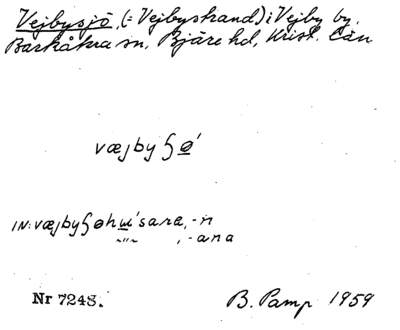 Vejbysjö, (= Vejbystrand) i Vejby by,
Barkåkra sn, Bjäre hd, Krist. län
væjbyɧø´
IN: væjbyɧøhɯ´sara, -n
~"~ , -ana
Nr 7248.
B. Pamp 1959